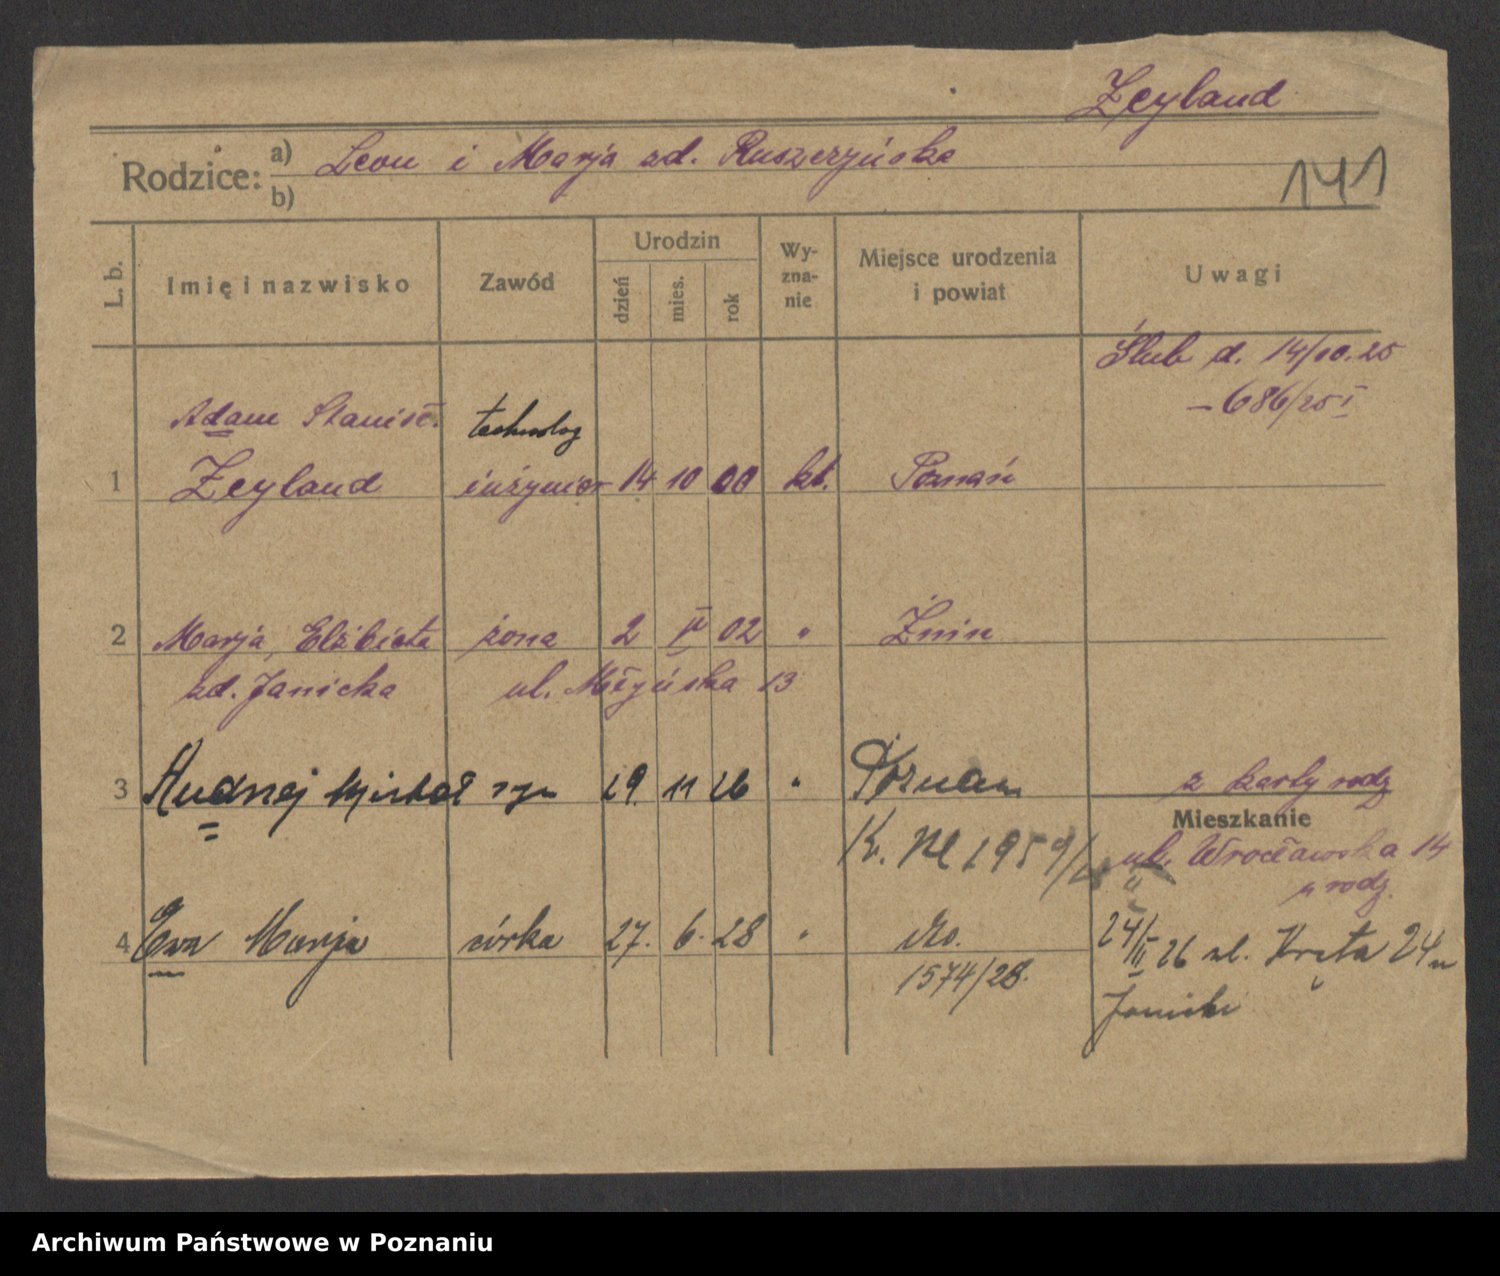 Zeyland
Rodzice: a) Leon i Marja zd. Ruszczyńska
b)
141
L. b.
Imię i nazwisko
Zawód
Urodzin
dzień mies. rok
Wy-
zna-
nie
Miejsce urodzenia
i powiat
Uwagi
Ślub d. 14/10.25
– 686/25 I
Adam Stanisł. technolog
1 Zeyland inżynier 14 10 00 kt. Poznań
2 Marja, Elżbieta żona 2 02 " Żnin
zd. Janicka ul. 13
3 Andrzej Michał syn 29. 11 26 " Poznań z karty rodz
Mieszkanie
K. 1959/ ul. Wrocławska 14
u rodz.
4 Ewa Marja córka 27. 6. 28 " do. 24/II 26 ul. Kręta 24 u
1574/28. Janicki
Archiwum Państwowe w Poznaniu